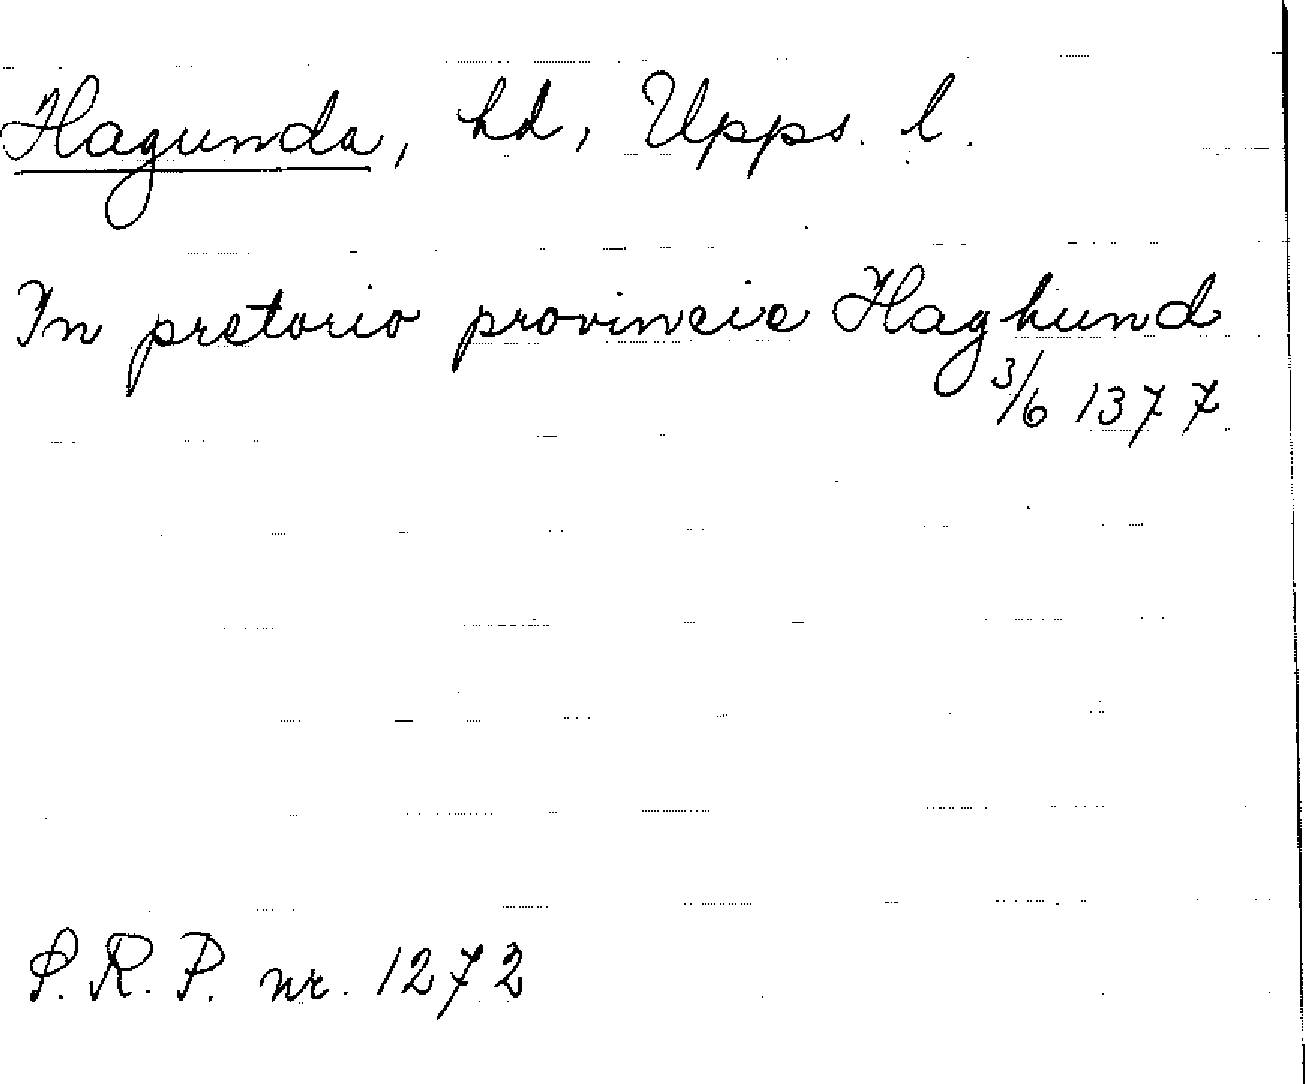 Hagunda, hd, Upps. l.
In pretorio provincie Haghund
3/6 1377.
S.R.P. nr. 1272